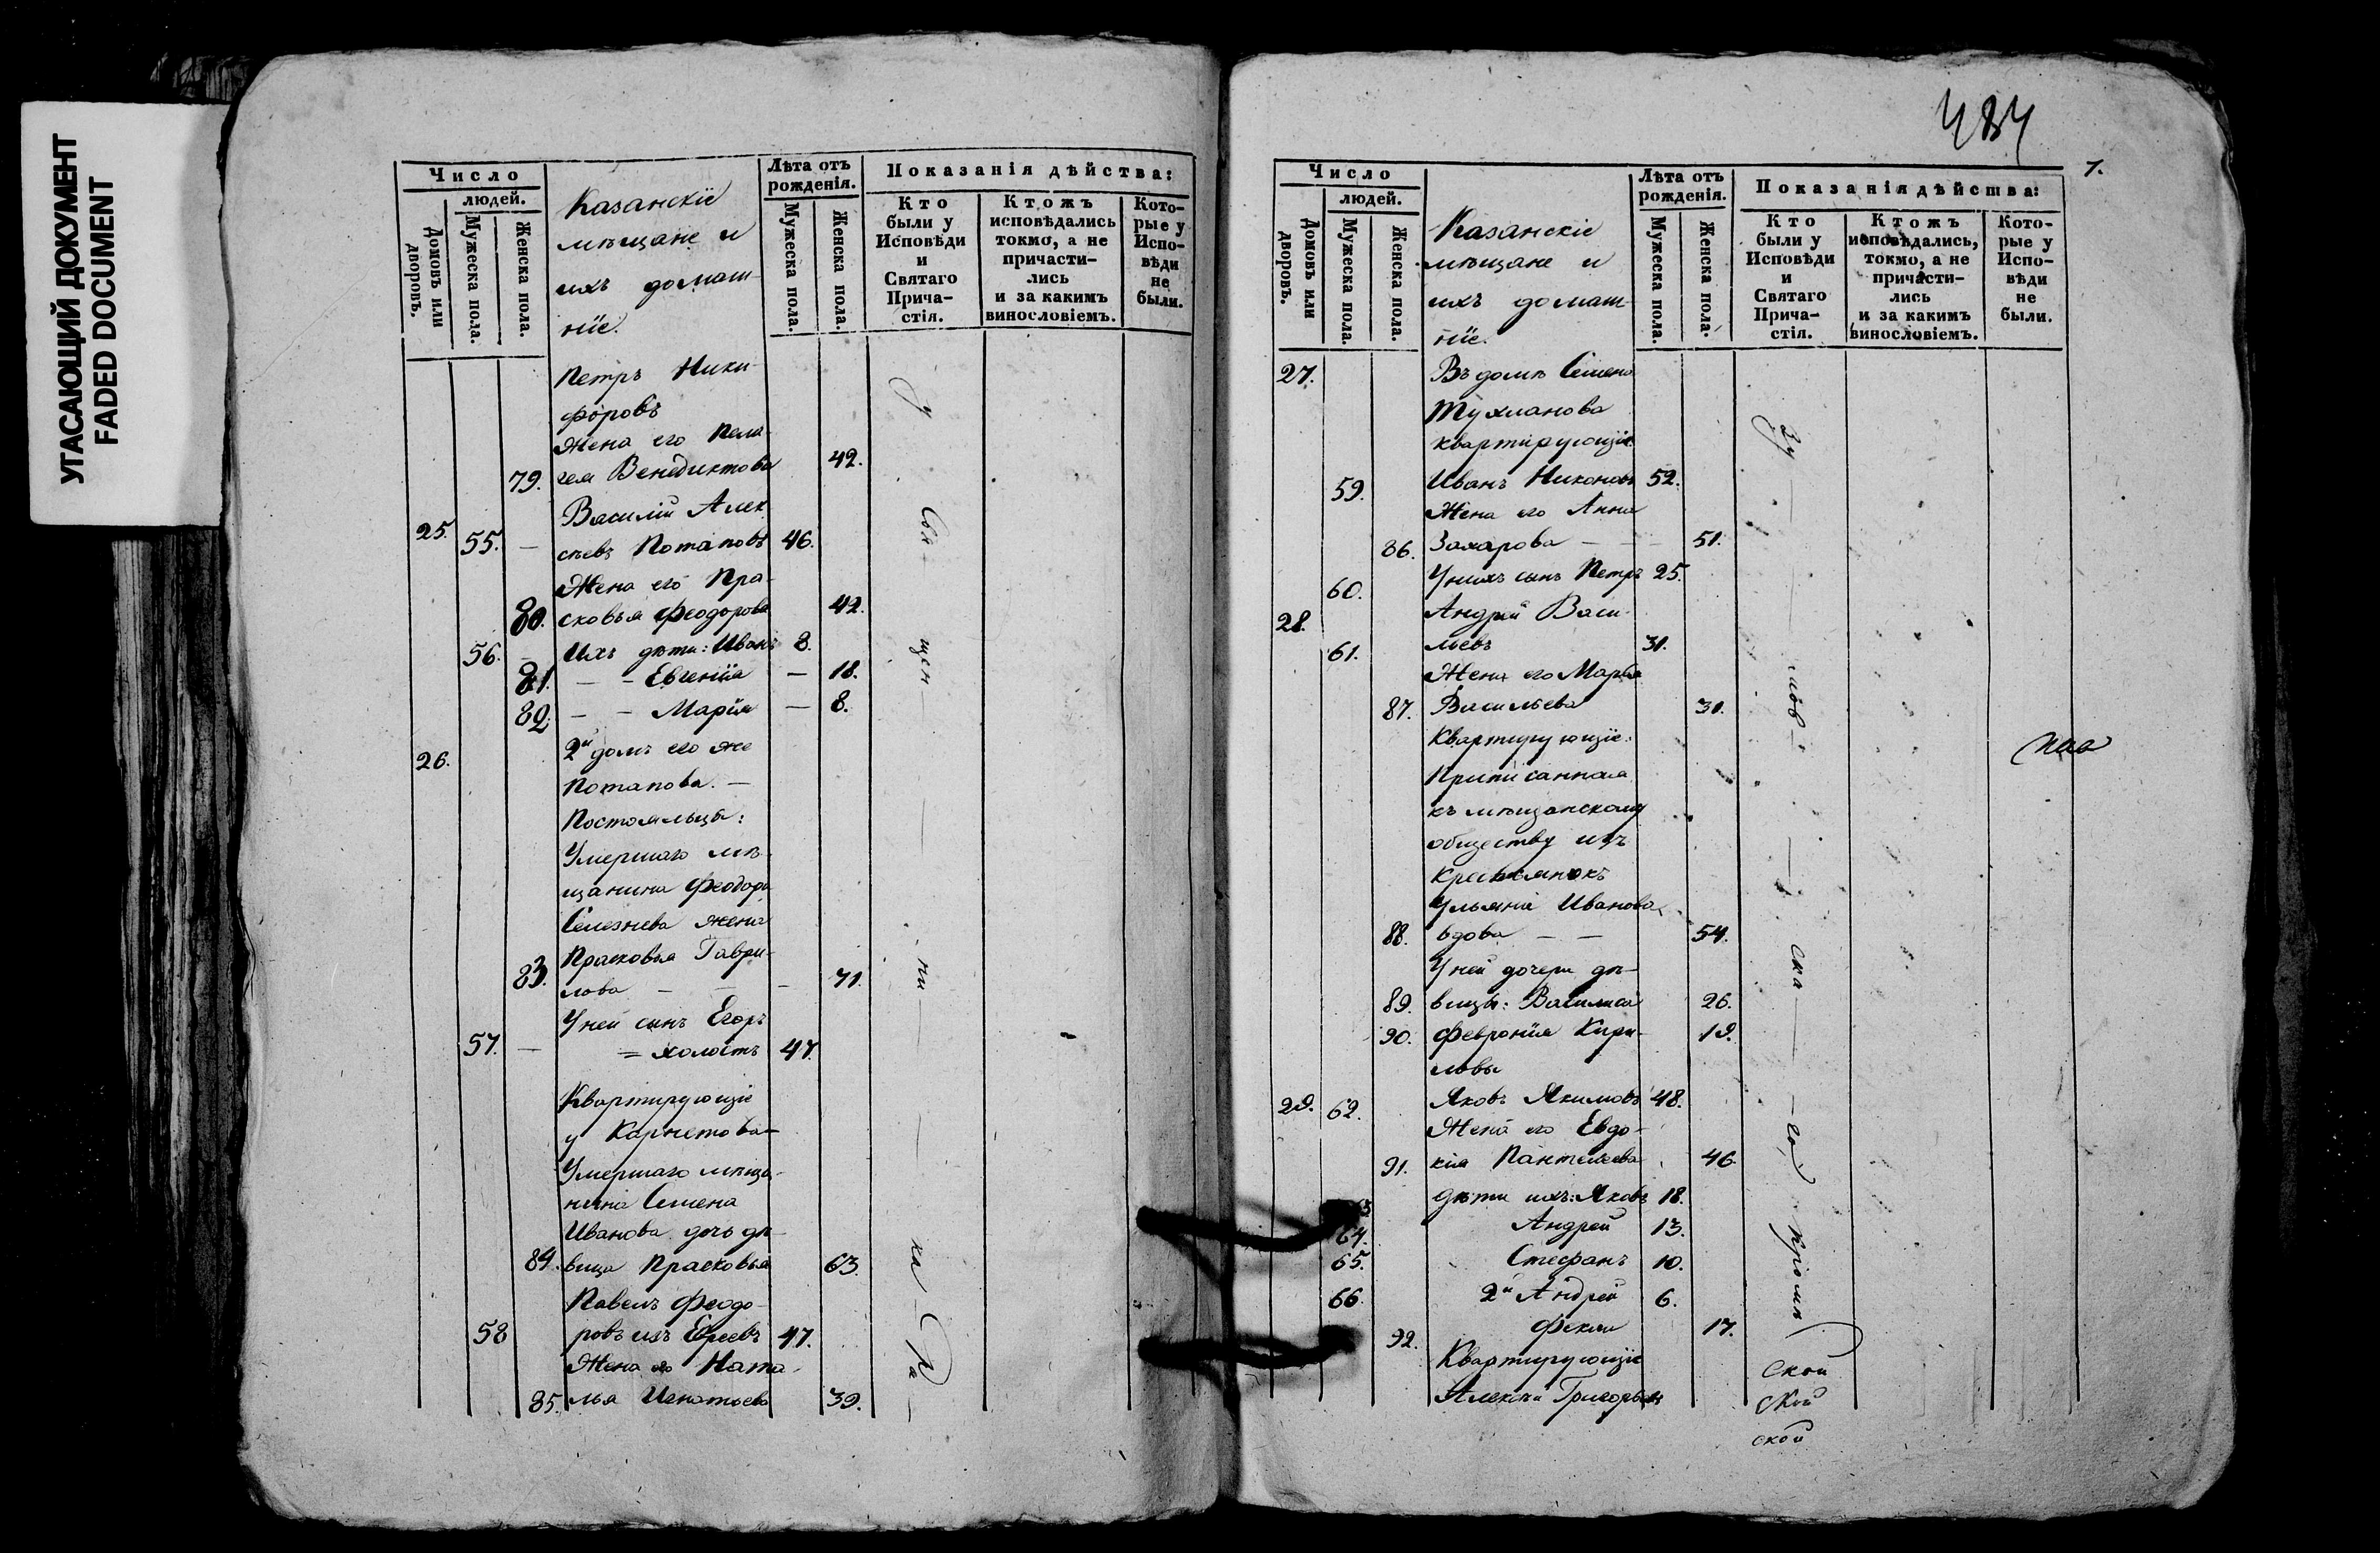 УГАСАЮЩИЙ ДОКУМЕНТ
FADED DOCUMENT
Число
людей.
Домовъ или дворовъ.
Мужеска пола.
Женска пола.
Казанскіе
мѣщане и
ихъ домаш-
ніе.
Лѣта отъ
рожденія.
Мужеска пола.
Женска пола.
Показанія дѣйства:
Кто
были у
Исповѣди
и
Святаго
Прича-
стія.
Ктожъ
исповѣдались
токмо, а не
причасти-
лись
и за какимъ
винословіемъ.
Кото-
рые у
Испо-
вѣди
не
были.
Петръ Ники-
форовъ
Жена его Пела-
79. гея Венедиктова 42.
Василій Алек-
25. 55. — сѣевъ Потаповъ 46.
Жена его Пра-
80. сковья Феодорова 42.
56. — Ихъ дѣти: Иванъ 8.
81. — — Евгенія — 18.
82. — — Марія — 8.
26. 2й домъ его же
Потапова. —
Постояльцы:
Умершаго мѣ-
щанина Феодора
Селезнева жена
Прасковья Гаври-
83. лова — — — 71.
У ней сынъ Егоръ
57. — = холостъ 47.
Квартирующіе
у Карнетова
Умершаго мѣща-
нина Семена
Иванова дочь дѣ-
84. вица Прасковья 63.
Павелъ Феодо-
58 ровъ изъ Евреевъ 47.
Жена его Ната-
85. лья Игнатьева 39.
484
7.
Число
людей.
Домовъ или дворовъ.
Мужеска пола.
Женска пола.
Казанскіе
мѣщане и
ихъ домаш-
ніе.
Лѣта отъ
рожденія.
Мужеска пола.
Женска пола.
Показанія дѣйства:
Кто
были у
Исповѣди
и
Святаго
Прича-
стія.
Ктожъ
исповѣдались,
токмо, а не
причасти-
лись
и за какимъ
винословіемъ.
Кото-
рые у
Испо-
вѣди
не
были.
27. Въ домѣ Семена
Тухманова
квартирующіе
59. Иванъ Никоновъ 52.
Жена его Анна
86. Захарова — — 51.
60. У нихъ сынъ Петръ 25.
28. Андрей Васи-
61. льевъ 31.
Жена его Марья
87. Васильева 31.
Квартирующіе:
Приписанная
къ мѣщанскому
обществу изъ
крестьянокъ
Ульяна Иванова
88. вдова — — 54.
У ней дочери дѣ-
89. вицы: Василиса 26.
90. Февронія Кири- 19.
ловы
29. 62. Яковъ Якимовъ 48.
Жена его Евдо-
91. кія Пантелеева 46.
Дѣти ихъ: Яковъ 18.
64. Андрей 13.
65. Стефанъ 10.
66. 2й Андрей 6.
92. Фекла 17.
Квартирующіе
Алексѣй Григорьевъ
ской
ской
ской